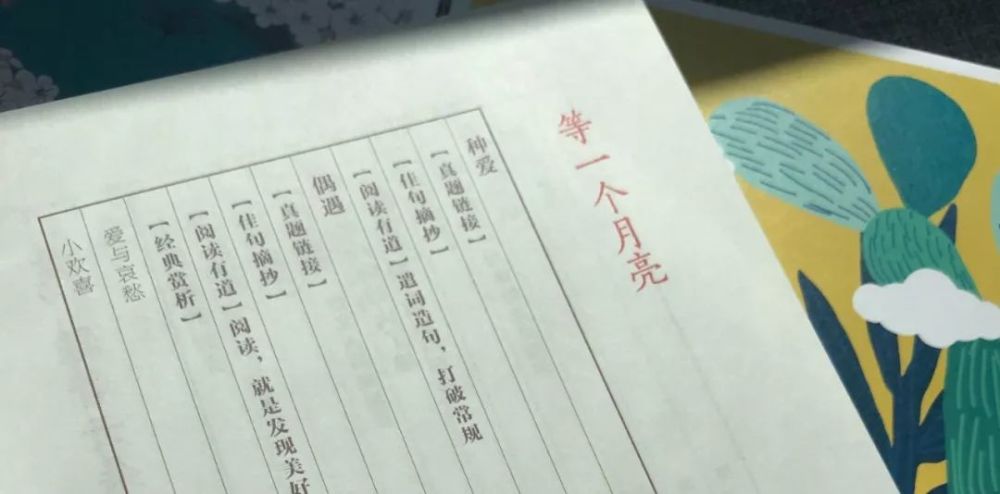 等一个月亮
种爱
【真题链接】
【佳句摘抄】
【阅读有道】遣词造句，打破常规
偶遇
【真题链接】
【佳句摘抄】
【阅读有道】阅读，就是发现美好
【经典赏析】
爱与哀愁
小欢喜